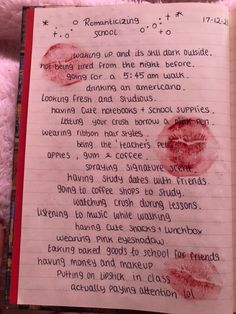 17-12-2
Romanticizing
school
waking up and its still dark outside.
not being tired from the night before.
going for a 5:45 am walk.
drinking an americano.
looking fresh and studious.
having cute notebooks + school supplies.
letting your crush borrow a pink pen.
wearing ribbon hair styles.
being the 'teachers' pet
apples, gum & coffee.
spraying signature scent
having study dates with friends.
going to coffee shops to study.
watching crush during lessons.
listening to music while walking
having cute snacks + lunchbox
wearing pink eyeshadow
taking baked goods to school for friends
having money and makeup
putting on lipstick in class
actually paying attention lol